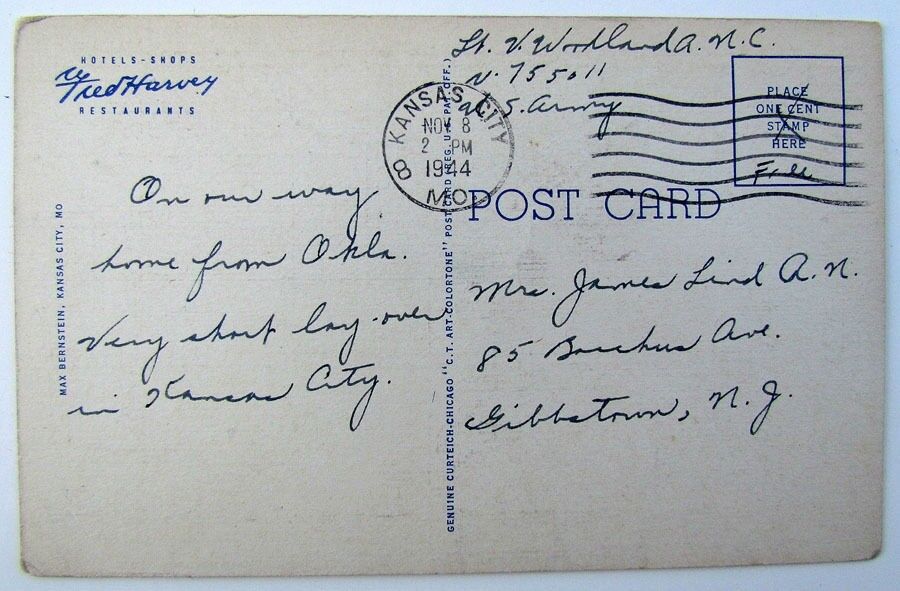 HOTELS-SHOPS
Fred Harvey
RESTAURANTS
MAX BERNSTEIN, KANSAS CITY, MO
On our way
home from Okla.
Very short lay-over
in Kansas City.
GENUINE CURTEICH-CHICAGO "C.T. ART-COLORTONE" POST CARD (REG. U.S. PAT. OFF.)
Lt. V. Woodland A.N.C.
N. 755011
U.S. Army
KANSAS CITY
NOV 8
2 PM
1944
MO.
8
PLACE
ONE CENT
STAMP
HERE
Free
POST CARD
Mrs. James Lind A.N.
85 Bacchus Ave.
Gibbstown, N.J.